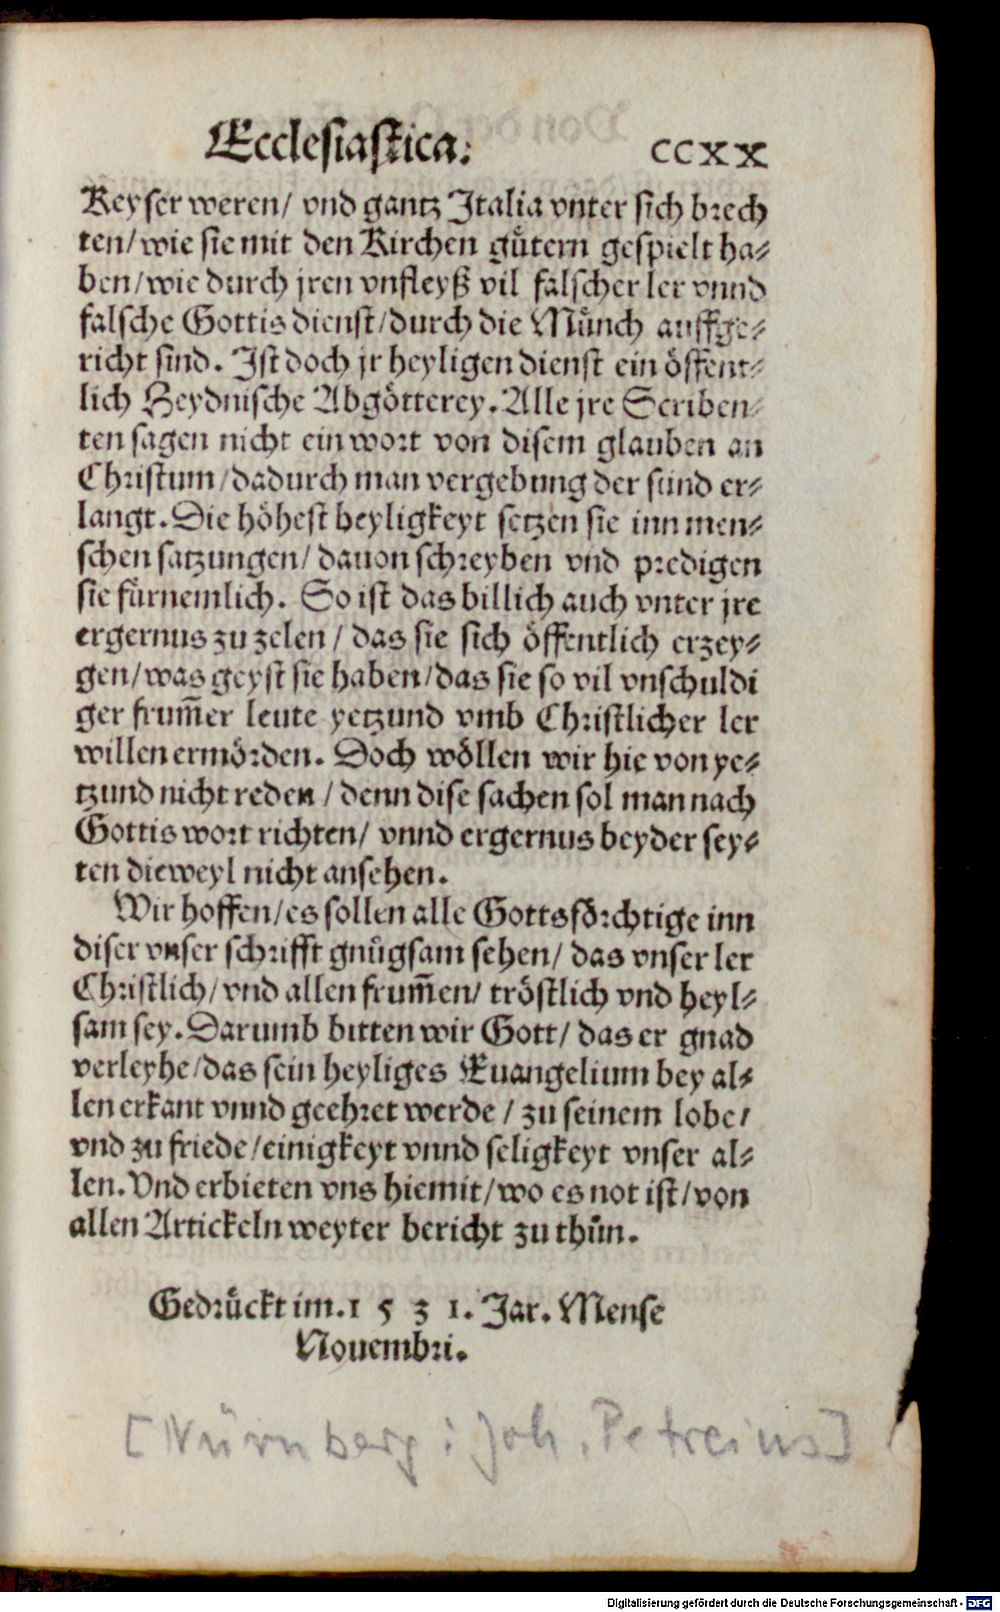 Ecclesiastica. CCXX
Keyser weren/ vnd gantz Italia vnter sich brech
ten/ wie sie mit den Kirchen gůtern gespielt ha⸗
ben/ wie durch jren vnfleyß vil falscher ler vnnd
falsche Gottis dienst/ durch die Můnch auffge⸗
richt sind. Ist doch jr heyligen dienst ein öffent⸗
lich Heydnische Abgötterey. Alle jre Scriben⸗
ten sagen nicht ein wort von disem glauben an
Christum/ dadurch man vergebung der sund er⸗
langt. Die höhest heyligkeyt setzen sie inn men⸗
schen satzungen/ dauon schreyben vnd predigen
sie fürnemlich. So ist das billich auch vnter jre
ergernus zu zelen/ das sie sich öffentlich erzey⸗
gen/ was geyst sie haben/ das sie so vil vnschuldi
ger frum̄er leute yetzund vmb Christlicher ler
willen ermörden. Doch wöllen wir hie von ye⸗
tzund nicht reden/ denn dise sachen sol man nach
Gottis wort richten/ vnnd ergernus beyder sey⸗
ten dieweyl nicht ansehen.
Wir hoffen/ es sollen alle Gottsförchtige inn
diser vnser schrifft gnůgsam sehen/ das vnser ler
Christlich/ vnd allen frum̄en/ tröstlich vnd heyl⸗
sam sey. Darumb bitten wir Gott/ das er gnad
verleyhe/ das sein heyliges Euangelium bey al⸗
len erkant vnnd geehret werde/ zu seinem lobe/
vnd zu friede/ einigkeyt vnnd seligkeyt vnser al⸗
len. Vnd erbieten vns hiemit/ wo es not ist/ von
allen Artickeln weyter bericht zu thůn.
Gedrůckt im. 1 5 3 1. Jar. Mense
Nouembri.
[Nürnberg: Joh. Petreius]
Digitalisierung gefördert durch die Deutsche Forschungsgemeinschaft - DFG